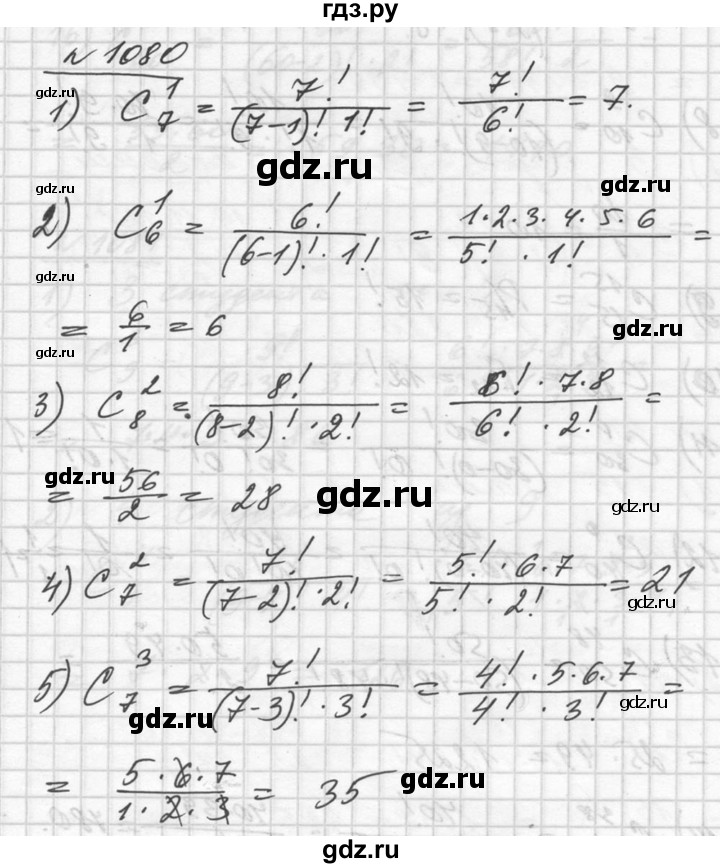 гдз.ру
№ 1080
gdz.ru
1) C₇¹ = 7!/((7-1)! 1!) = 7!/6! = 7.
gdz.ru
gdz.ru gdz.ru
2) C₆¹ = 6!/((6-1)! · 1!) = (1·2·3·4·5·6)/(5! · 1!) =
gdz.ru
= 6/1 = 6
gdz.ru
gdz.ru
3) C₈² = 8!/((8-2)! · 2!) = (6! · 7·8)/(6! · 2!) =
gdz.ru
= 56/2 = 28
gdz.ru gdz.ru
4) C₇² = 7!/((7-2)! · 2!) = (5! · 6·7)/(5! · 2!) = 21
gdz.ru
5) C₇³ = 7!/((7-3)! · 3!) = (4! · 5·6·7)/(4! · 3!) =
gdz.ru gdz.ru
= (5·6·7)/(1·2·3) = 35
gdz.ru
gdz.ru